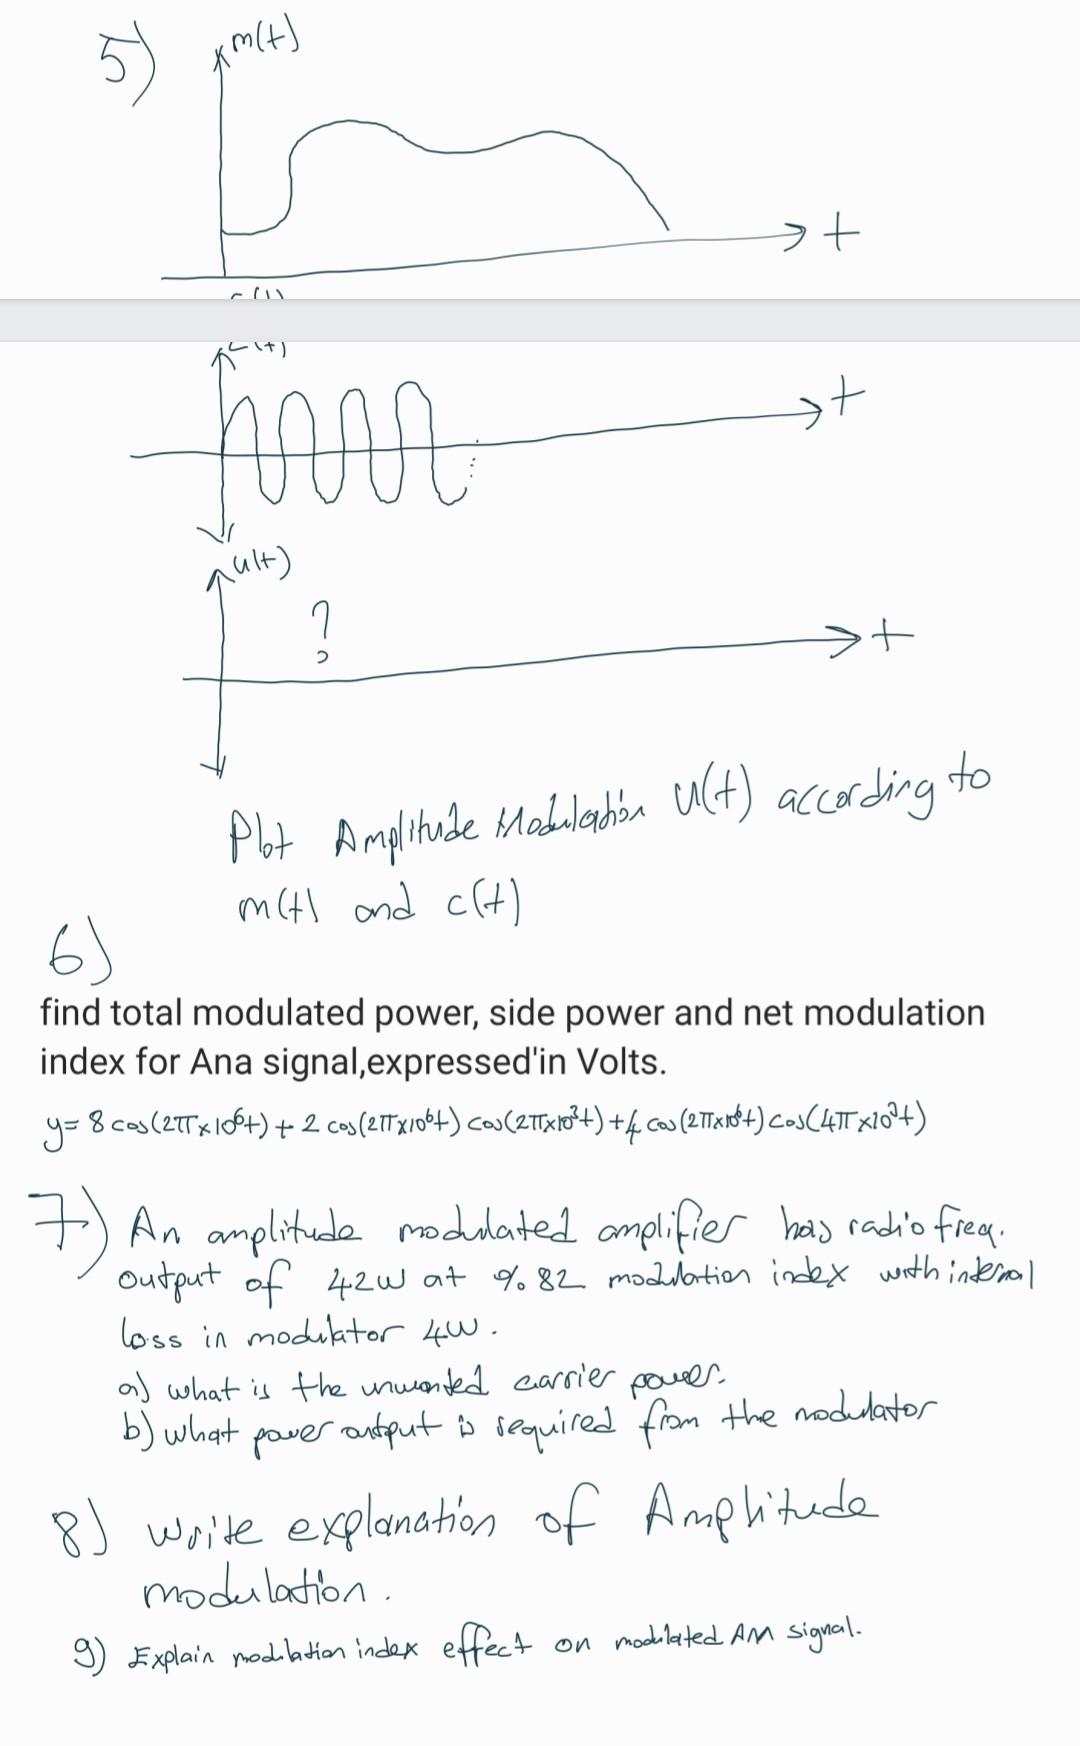 5)
m(t)
t
c(t)
t
u(t)
?
t
Plot Amplitude Modulation U(t) according to
m(t) and c(t)
6)
find total modulated power, side power and net modulation
index for Ana signal,expressed'in Volts.
y= 8 cos(2π×10⁶t) + 2 cos(2π×10⁶t) cos(2π×10³t) + 4 cos(2π×10⁶t) cos(4π×10³t)
7) An amplitude modulated amplifier has radio freq.
output of 42w at %82 modulation index with internal
loss in modulator 4w.
a) what is the unwanted carrier power.
b) what power output is required from the modulator
8) write explanation of Amplitude
modulation.
9) Explain modulation index effect on modulated AM signal.